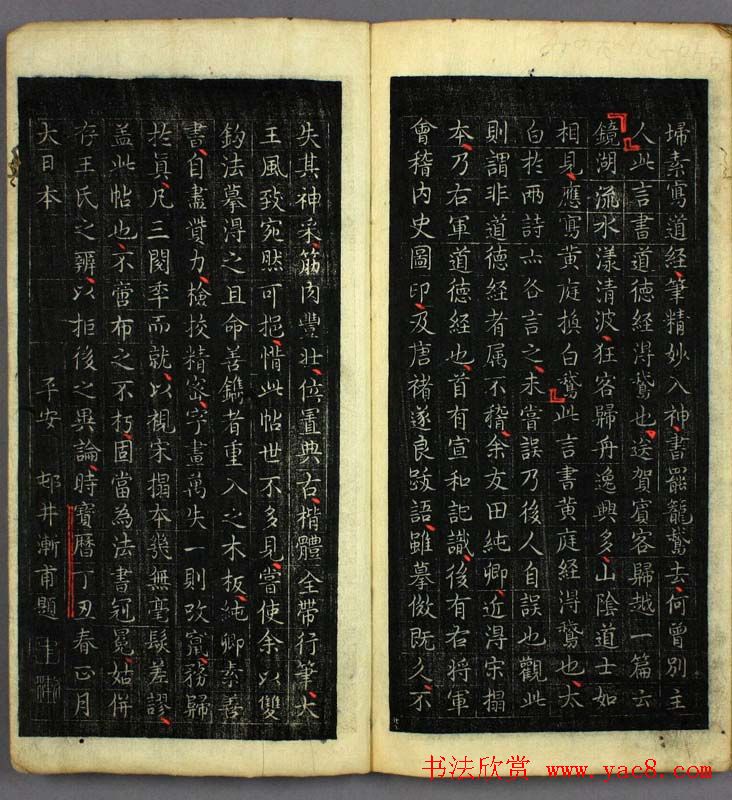 埽素寫道經筆精妙入神書罷籠鵞去何曾別主
人此言書道徳經淂鵞也送賀賓客歸越一篇云
鏡湖流水漾清波狂客歸舟逸興多山陰道士如
相見應寫黄庭換白鵞此言書黄庭経淂鵞也太
白扵兩詩亦各言之未嘗誤乃後人自誤也觀此
則謂非道徳經者属不稽余友田純卿近淂宋搨
本乃右軍道徳経也首有宣和記識後有右将軍
會稽内史圖印及唐褚遂良跋語雖摹倣既久不
失其神采筋肉豐壮位置典古楷體全帯行筆大
王風致宛然可挹惜此帖世不多見嘗使余以雙
鈎法摹淂之且命善鐫者重入之木板純卿索善
書自盡貲力檢挍精宻字畫萬失一則改窜務歸
扵眞凡三閲季而就以視宋搨本幾無毫髪差謬
盖此帖也不啻布之不朽固當為法書冠冕姑併
存王氏之辨以拒後之異論時寶暦丁丑春正月
大日本 平安 邨井漸甫題
书法欣赏 www.yac8.com